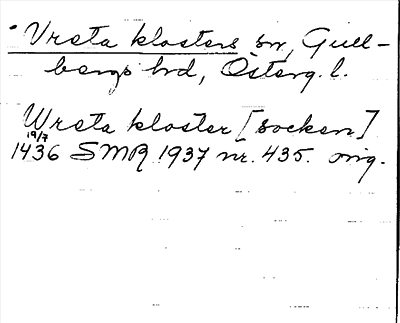 Vreta klosters sn, Gull-
bergs hd, Österg. l.
Wreta kloster [socken]
19/7
1436 SMR 1937 nr. 435. orig.